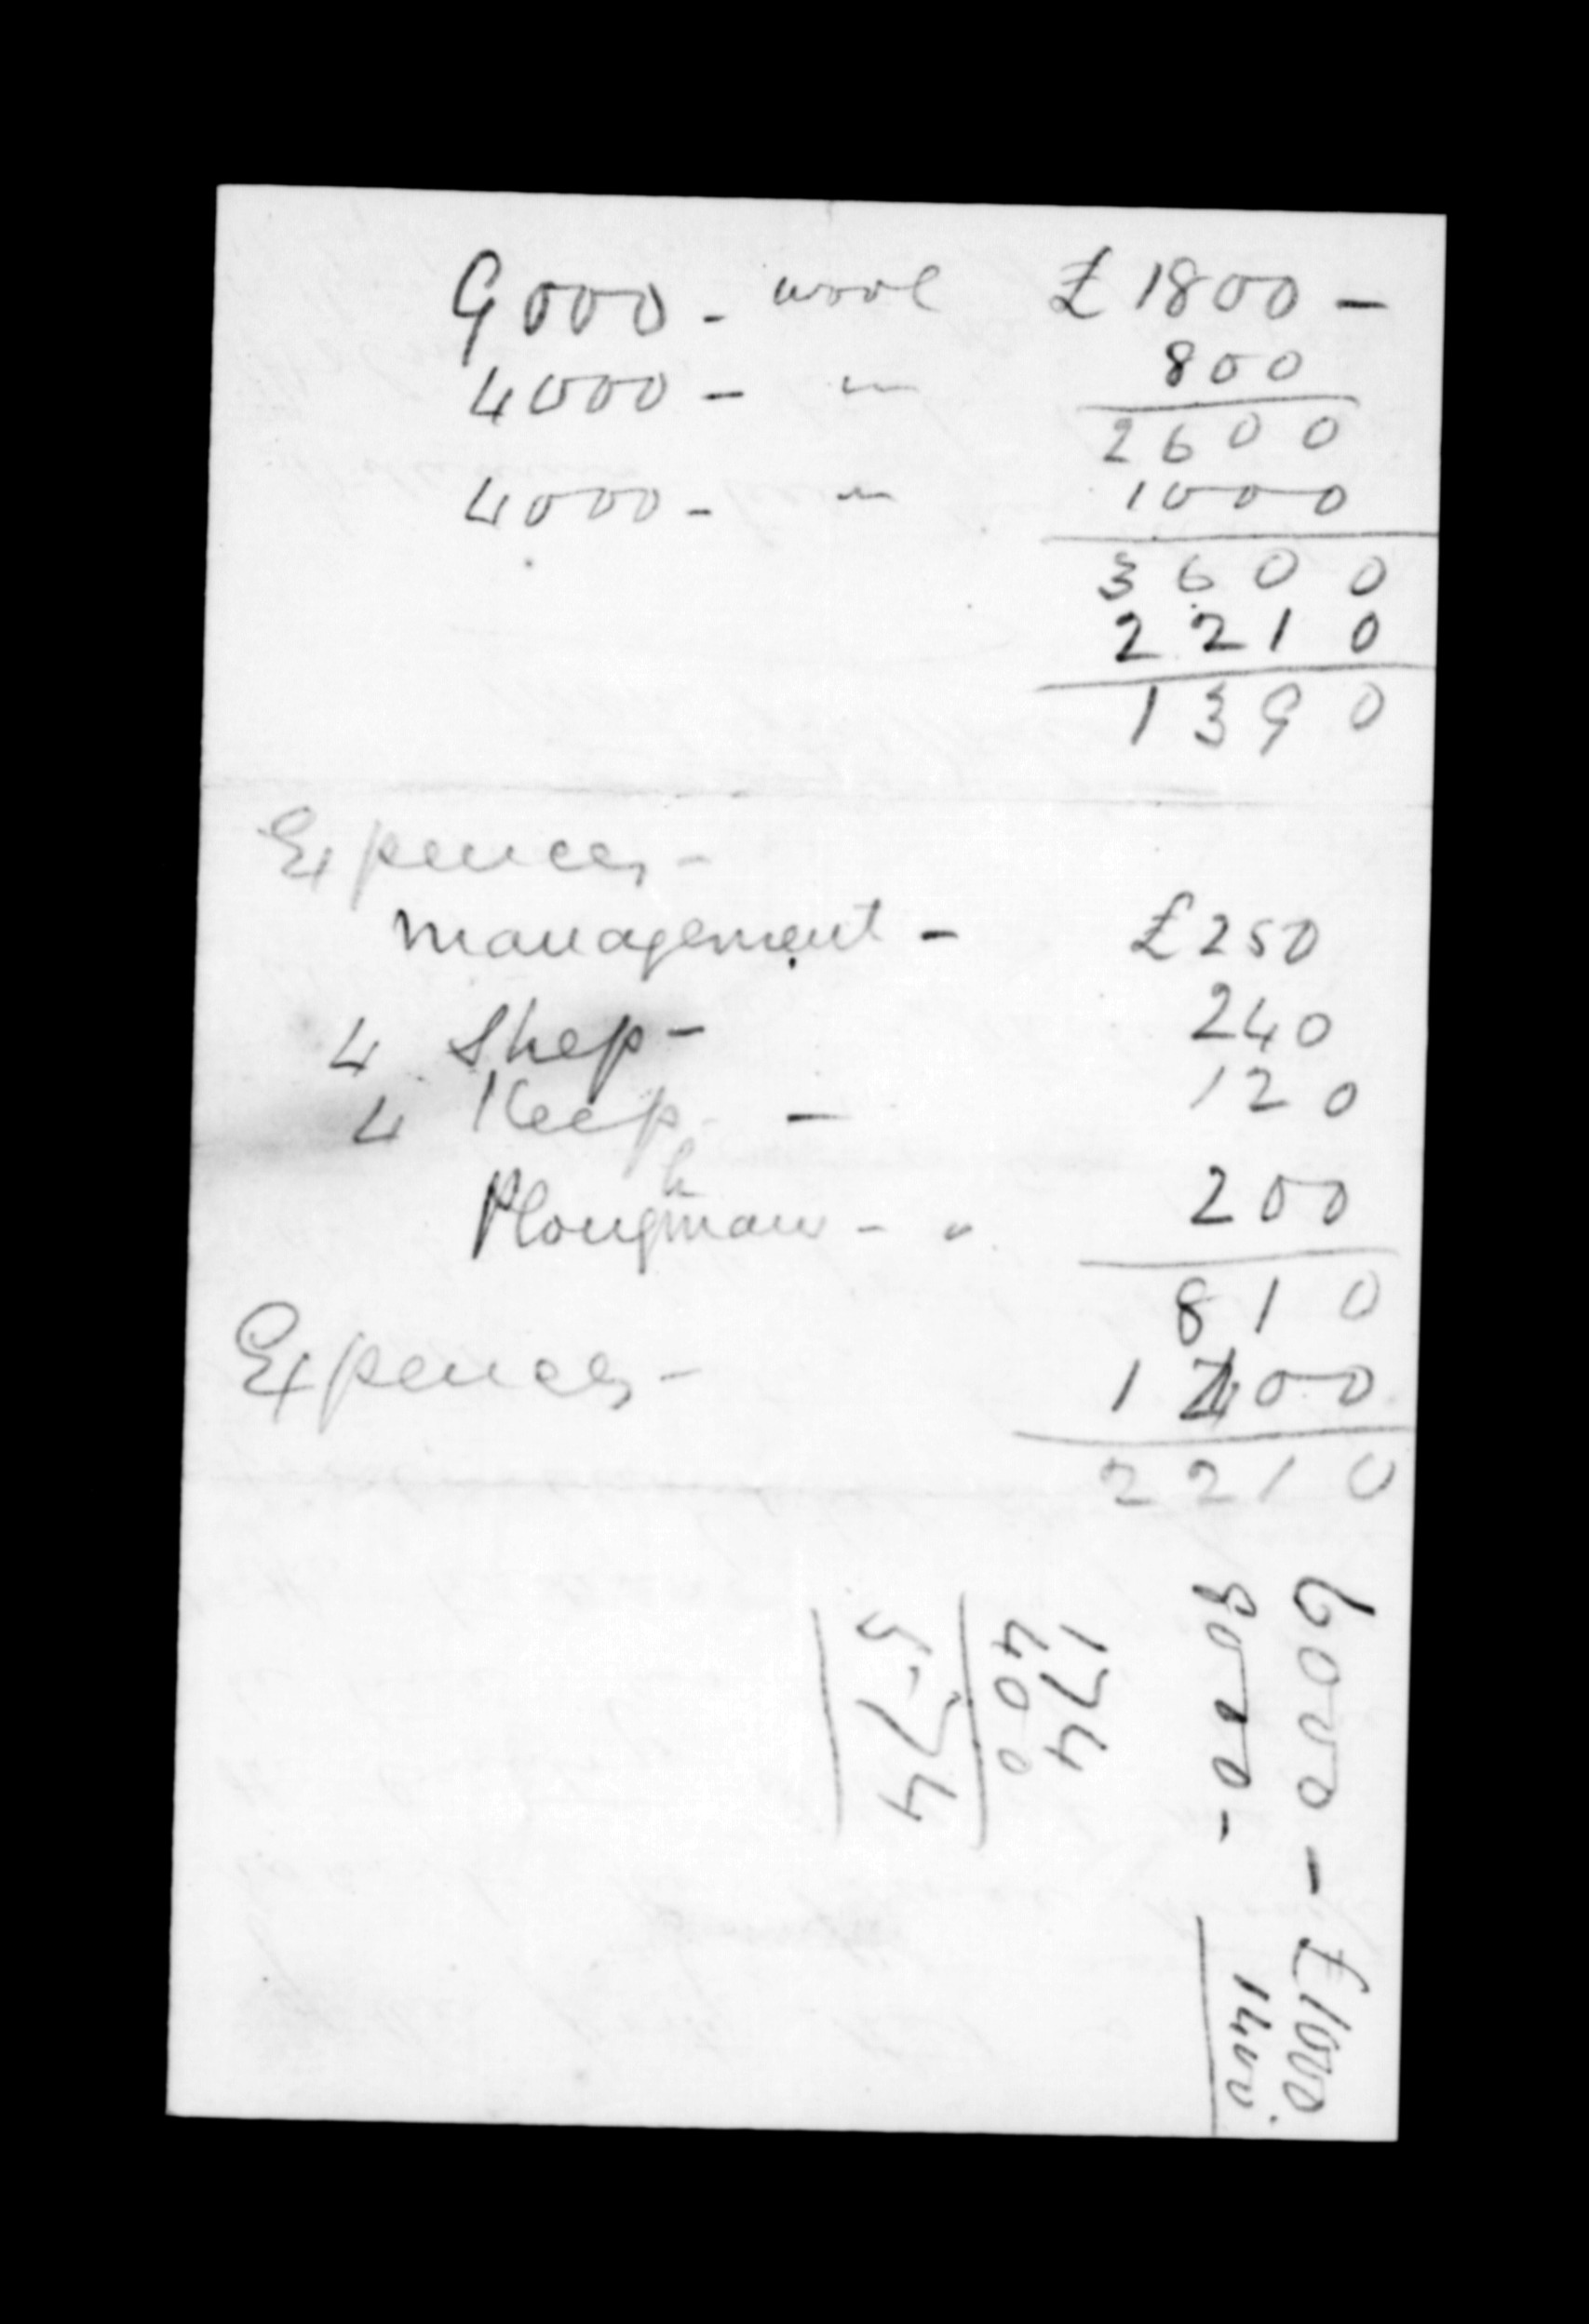 9000 - wool £1800 -
4000 - " 800
2600
4000 - " 1000
3600
2210
1390
Expences -
Management - £250
4 Shep - 240
4 Keep - 120
Ploughman - " 200
810
Expences - 1400
2210
6000 - £1000.
8000 - 1400
174
400
574